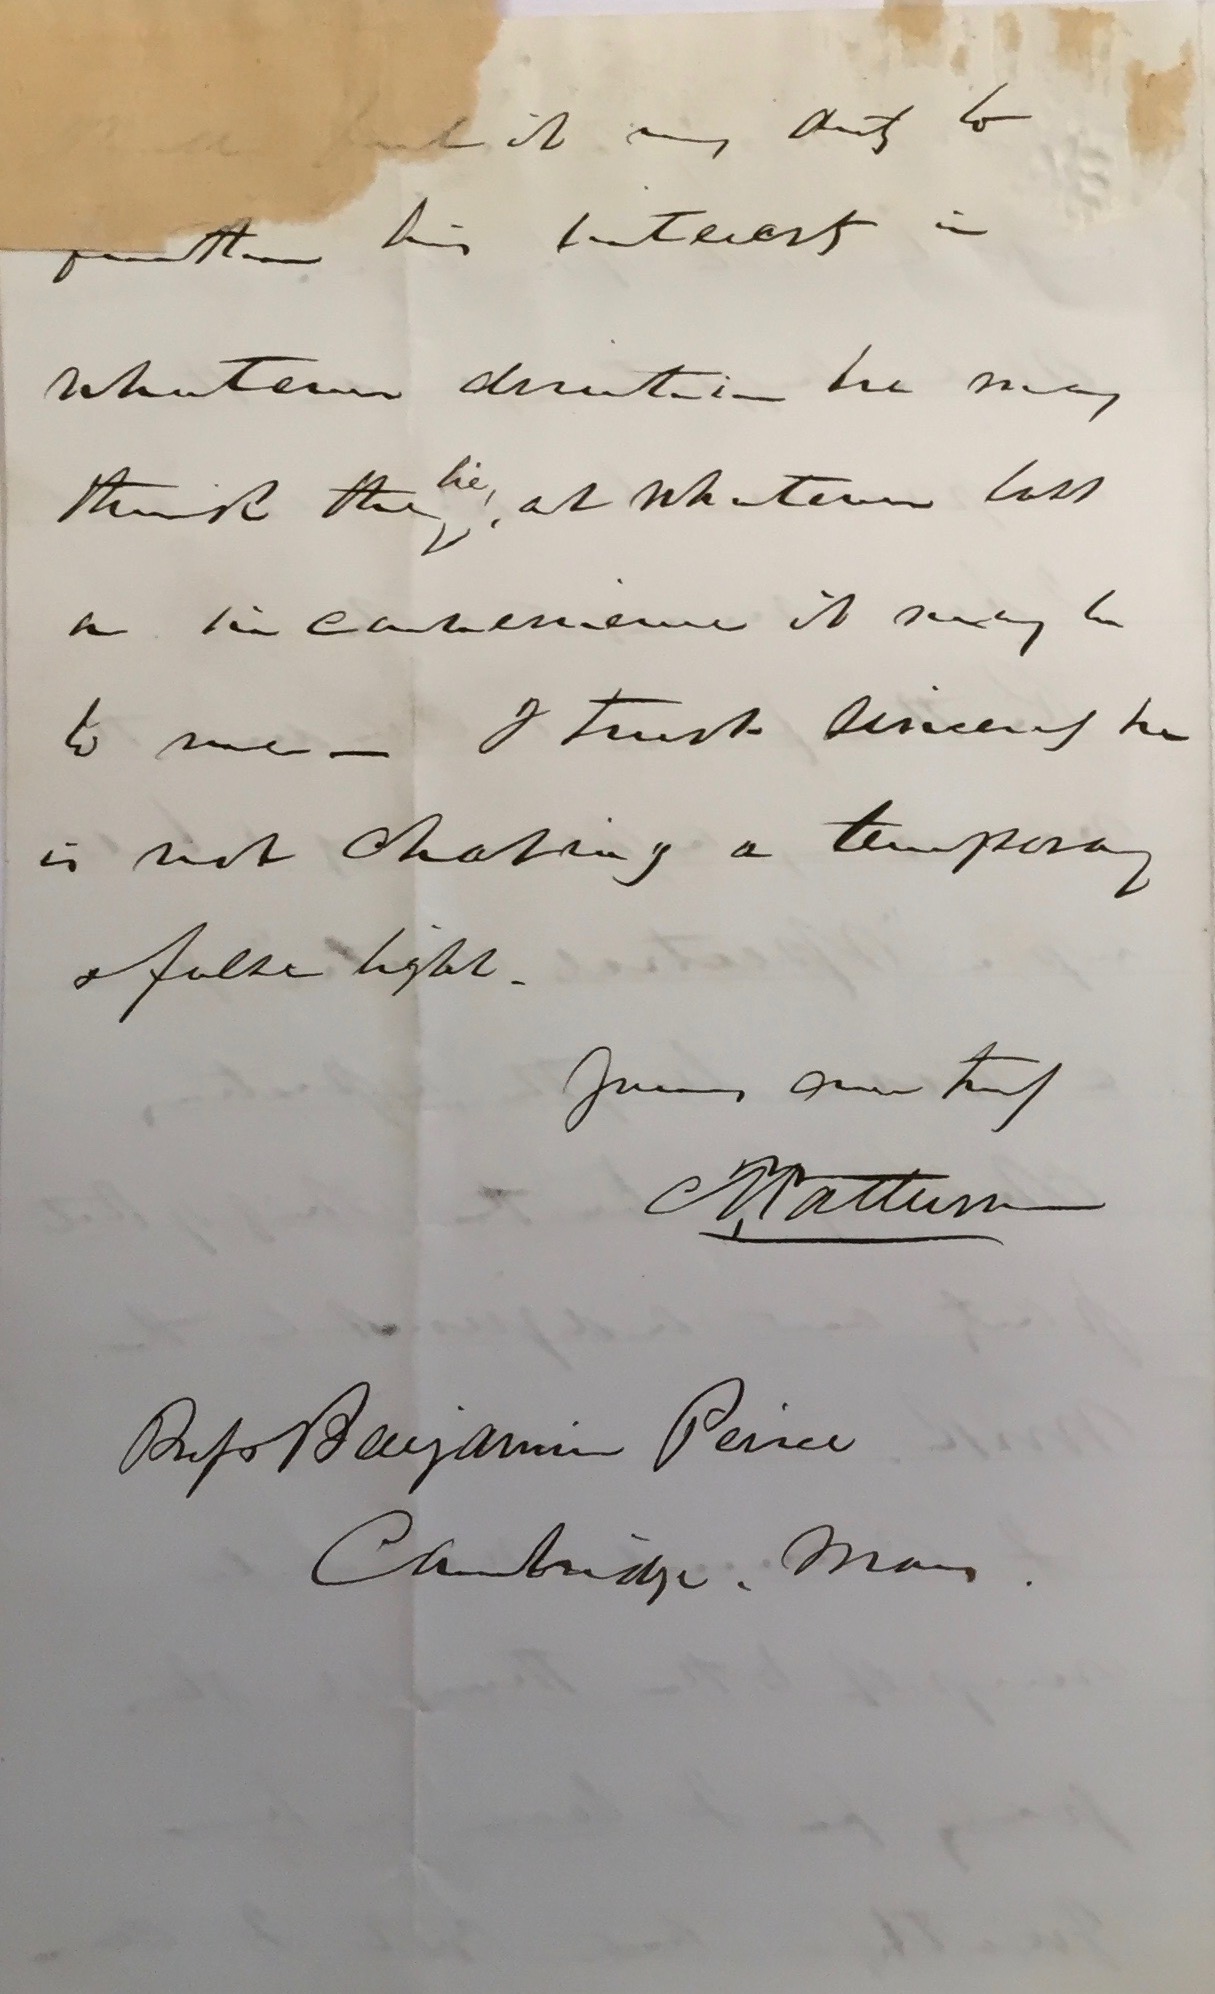 it my duty to
further his interests in
whatever direction he may
think they lie, at whatever loss
or inconvenience it may be
to me — I trust sincerely he
is not chasing a temporary
& false light.
Yours ever truly
C P Patterson
Profr Benjamin Peirce
Cambridge. Mass.